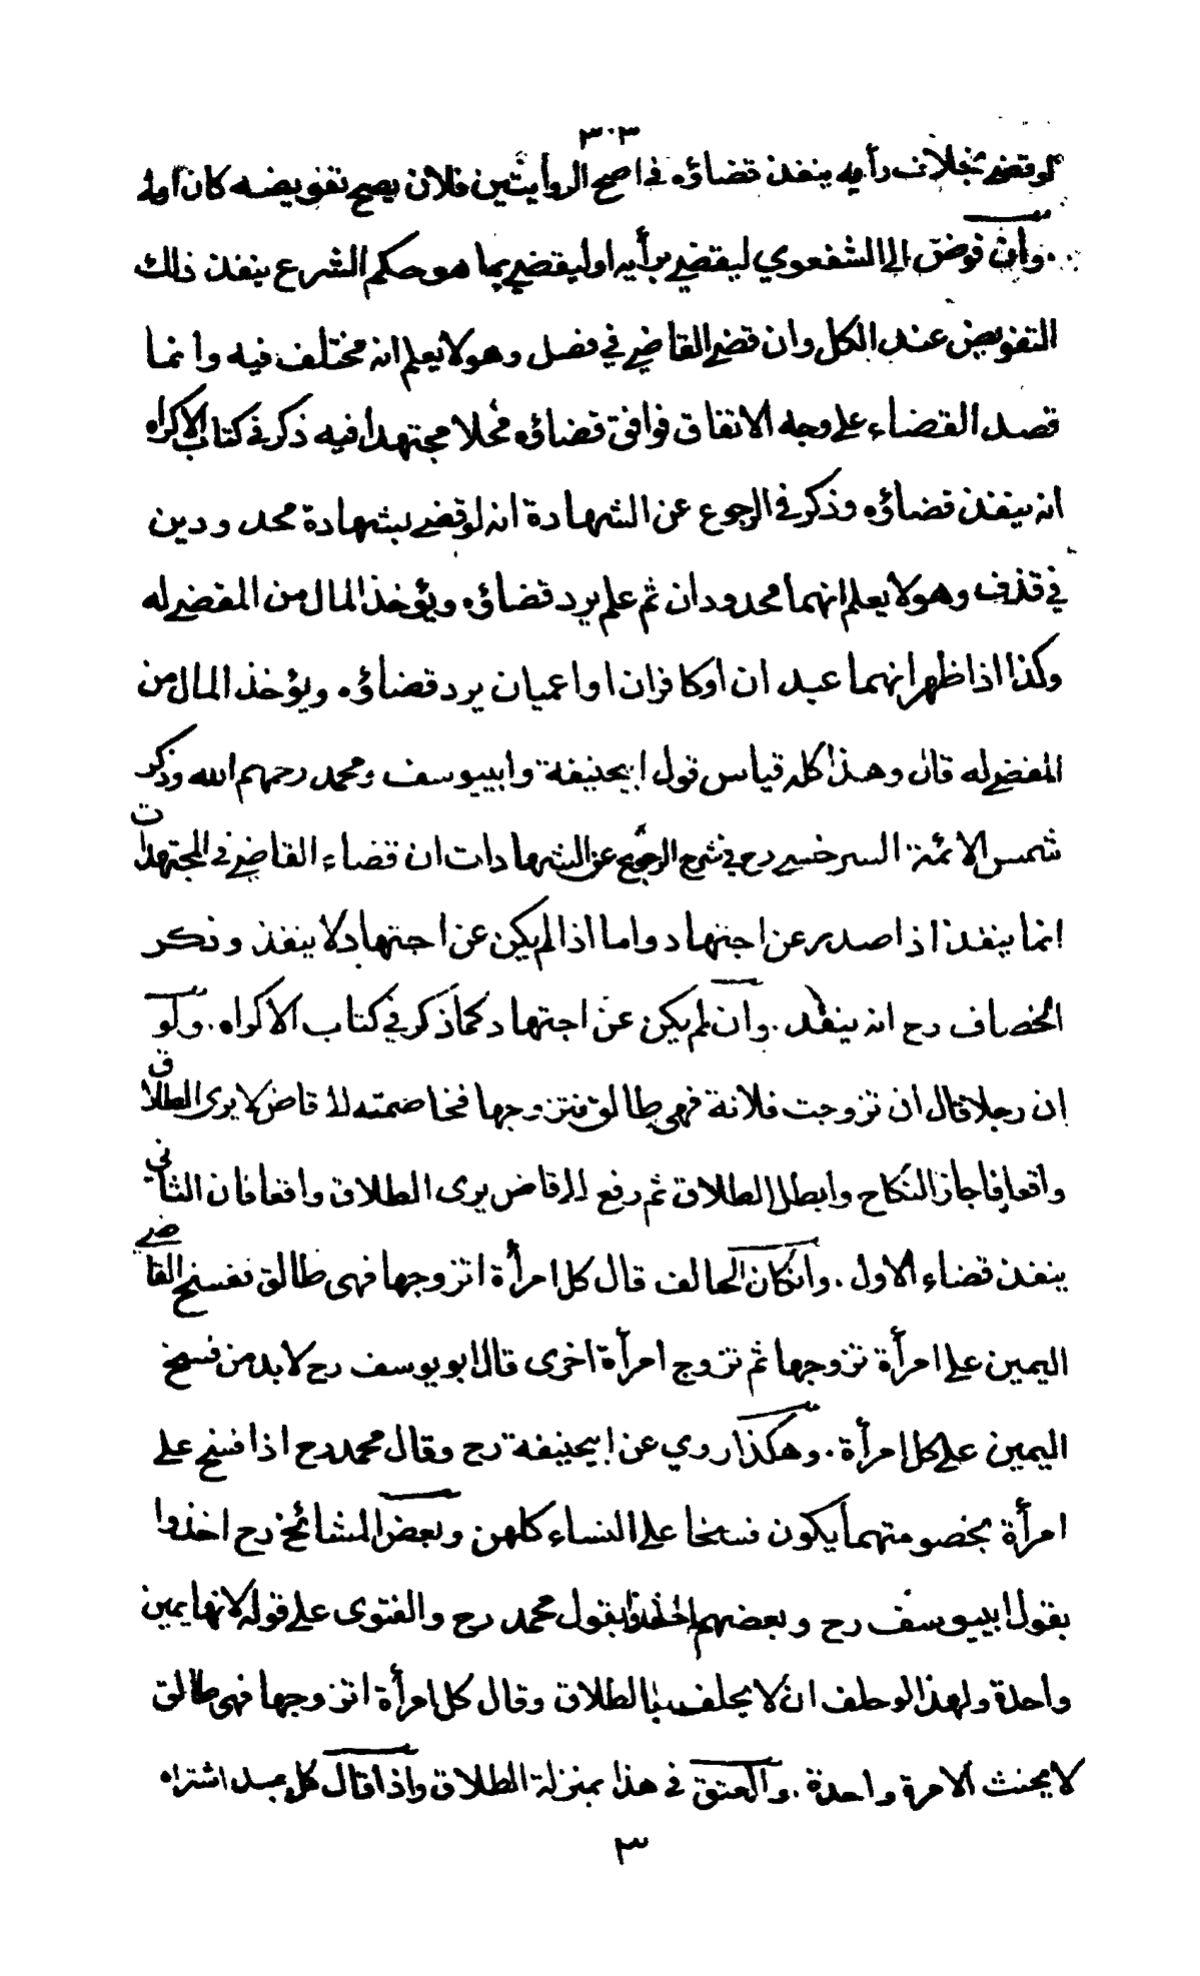 ٣٠٣
لو قضى بخلاف رأيه ينفذ قضاؤه في اصح الروايتين فلان يصح تفويضه كان اولى
وان فوض الى الشفعوي ليقضي برأيه او ليقضي بما هو حكم الشرع ينفذ ذلك
التفويض عند الكل وان قضى القاضي في فصل وهو لا يعلم انه مختلف فيه وانما
قصد القضاء على وجه الاتفاق فوافق قضاؤه محلا مجتهدا فيه ذكر في كتاب الاكراه
انه ينفذ قضاؤه وذكر في الرجوع عن الشهادة انه لو قضى بشهادة محدودين
في قذف وهو لا يعلم انهما محدودان ثم علم يرد قضاؤه ويؤخذ المال من المقضى له
وكذا اذا ظهر انهما عبدان او كافران او اعميان يرد قضاؤه ويؤخذ المال من
المقضى له قال وهذا كله قياس قول ابيحنيفة وابييوسف ومحمد رحمهم الله وذكر
شمس الائمة السرخسي رح في شرح الرجوع عن الشهادات ان قضاء القاضي في المجتهدات
انما ينفذ اذا صدر عن اجتهاد واما اذا لم يكن عن اجتهاد لا ينفذ وذكر
الخصاف رح انه ينفذ . وان لم يكن عن اجتهاد كما ذكر في كتاب الاكراه . ولو
ان رجلا قال ان تزوجت فلانة فهي طالق فتزوجها فخاصمته الى قاض لا يرى الطلاق
واقعا فاجاز النكاح وابطل الطلاق ثم رفع الى قاض يرى الطلاق واقعا فان الثاني
ينفذ قضاء الاول . وان كان الحالف قال كل امرأة اتزوجها فهى طالق ففسخ القاضي
اليمين على امرأة تزوجها ثم تزوج امرأة اخرى قال ابو يوسف رح لا بد من فسخ
اليمين على كل امرأة . وهكذا روي عن ابيحنيفة رح وقال محمد رح اذا فسخ على
امرأة بخصومتهما يكون فسخا على النساء كلهن وبعض المشائخ رح اخذوا
بقول ابييوسف رح وبعضهم اخذوا بقول محمد رح والفتوى على قوله لانها يمين
واحدة ولهذا لو حلف ان لا يحلف بالطلاق وقال كل امرأة اتزوجها فهى طالق
لا يحنث الا مرة واحدة . والعتق في هذا بمنزلة الطلاق واذا قال كل عبد اشتراه
٣